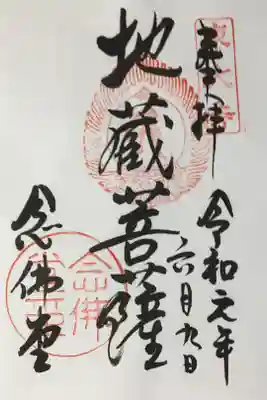 奉拝
令和元年
六月九日
地蔵菩薩
念佛堂